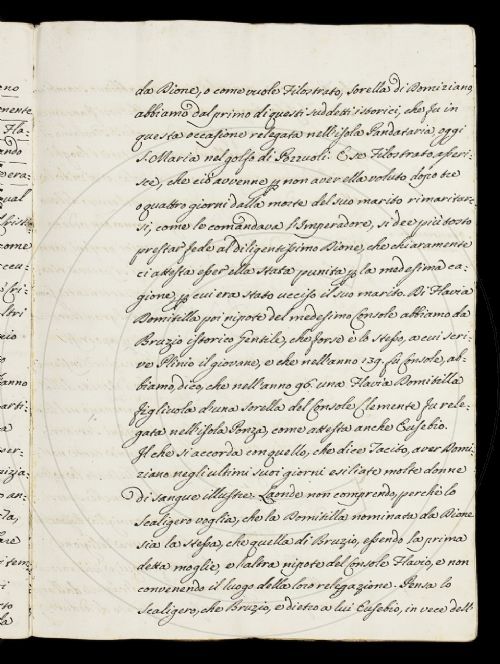 da Dione, o come vuole Filostrato, sorella di Domiziano,
abbiamo dal primo di questi suddetti istorici, che fu in
questa occasione relegata nell'isola Pandataria, oggi
S. Maria nel golfo di Pozzuoli. E se Filostrato asseri-
sce, che ciò avvenne p non aver ella voluto dopo tre
o quattro giorni dalla morte del suo marito rimaritar-
si, come le comandava l'Imperadore, si dee più tosto
prestar fede al diligentissimo Dione, che chiaramente
ci attesta esser ella stata punita p la medesima ca-
gione, p cui era stato ucciso il suo marito. Di Flavia
Domitilla poi nipote del medesimo Console abbiamo da
Bruzio istorico gentile, che forse è lo stesso, a cui scri-
ve Plinio il giovane, e che nell'anno 139. fu Console, ab-
biamo, dico, che nell'anno 96. una Flavia Domitilla
figliuola d'una sorella del Console Clemente fu rele-
gata nell'isola Ponza, come attesta anche Eusebio.
Il che si accorda con quello, che dice Tacito, aver Domi-
ziano negli ultimi suoi giorni esiliate molte donne
di sangue illustre. Laonde non comprendo, perchè lo
Scaligero voglia, che la Domitilla nominata da Dione
sia la stessa, che quella di Bruzio, essendo la prima
detta moglie, e l'altra nipote del Console Flavio, e non
convenendo il luogo della loro relegazione. Pensa lo
Scaligero, che Bruzio, e dietro a lui Eusebio, in vece dell'